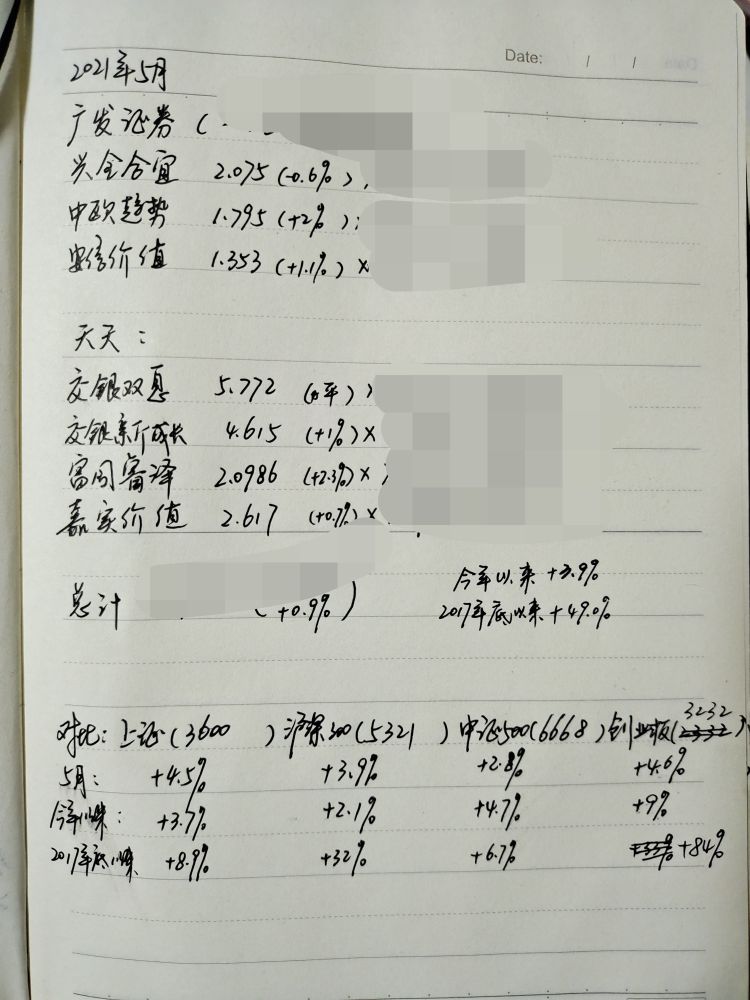 Date: / /
2021年5月
广发证券 (
兴全合宜 2.075 (-0.6%)
中欧趋势 1.795 (+2%)
安信价值 1.353 (+1.1%) ×
天天：
交银双息 5.772 (平)
交银新成长 4.615 (+1%) ×
富国富泽 2.0986 (+2.3%) ×
嘉实价值 2.617 (+0.7%) ×
今年以来 +3.9%
总计 (+0.9%)
2017年底以来 +49.0%
对比: 上证(3600 ) 沪深300(5321 ) 中证500(6668) 创业板(3232)
5月: +4.5% +3.9% +2.8% +4.6%
今年以来: +3.7% +2.1% +4.7% +9%
2017年底以来 +8.9% +32% +6.7% +84%